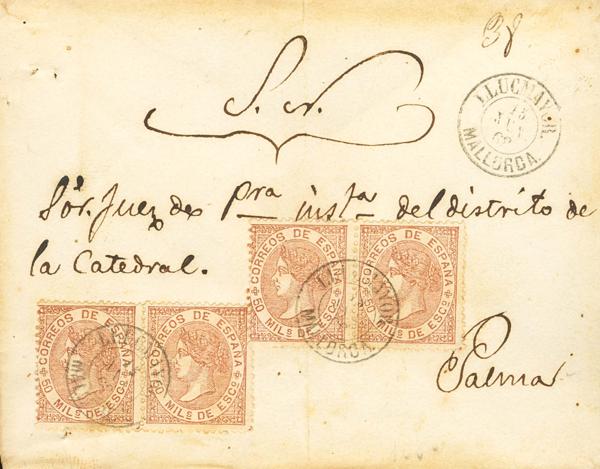 38
S. N.
LLUCMAYOR.
15
JUL
68
MALLORCA.
Sór. Juez de pra insta del distrito de
la Catedral.
Palma
CORREOS DE ESPAÑA
50 MILS DE ESCO
CORREOS DE ESPAÑA
50 MILS DE ESCO
MALLORCA.
CORREOS DE ESPAÑA
50 MILS DE ESCO
CORREOS DE ESPAÑA
50 MILS DE ESCO